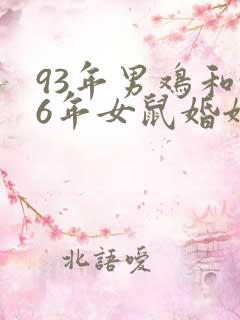 93年男鸡和
6年女鼠婚
北語噯